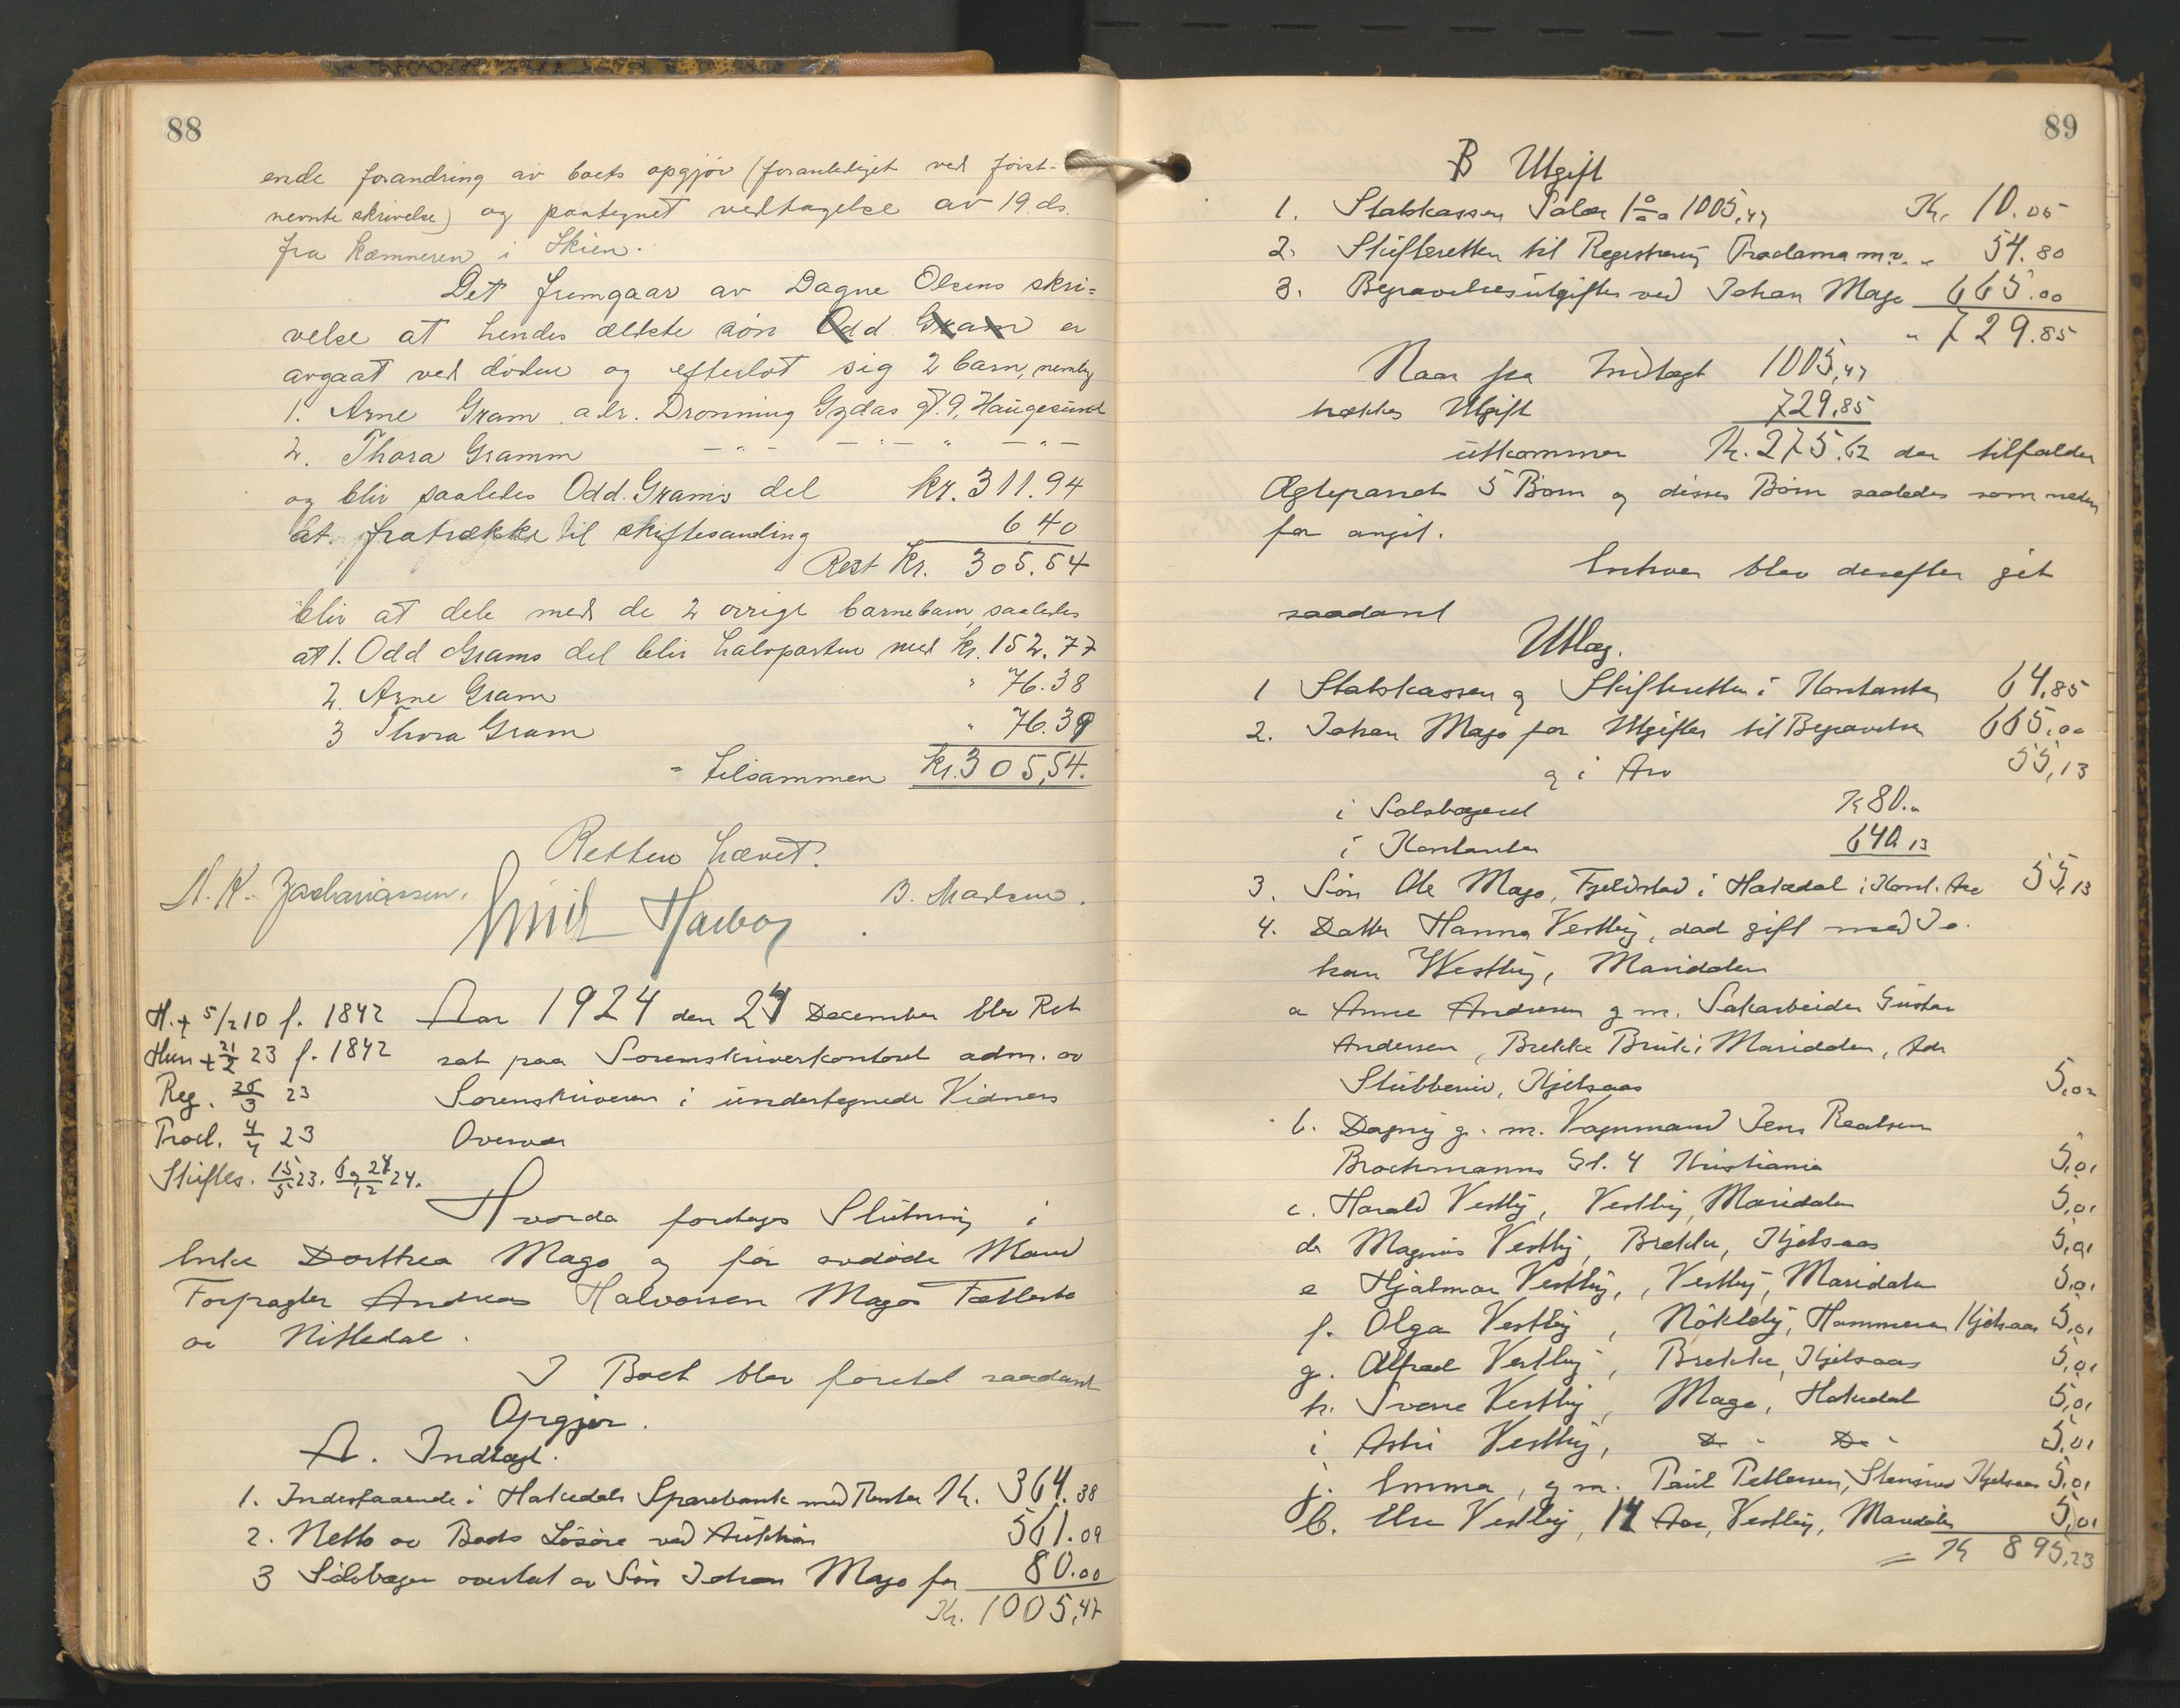 88
ende forandring av boets opgjør (foranlediget ved først-
nevnte skrivelse) og paategnet vedtagelse av 19. ds.
fra kæmneren i Skien.
Det fremgaar av Dagne Olsens skri=
velse at hendes ældste søn Odd Gram er
avgaat ved døden og efterlot sig 2 barn, nemlig
1. Arne Gram adr. Dronning Gydas gt. 9, Haugesund
2. Thora Gramm -"- -"- " -"-
og blir saaledes Odd Grams del kr. 311.94
at fratrække til skiftesamling 6 40
Rest kr. 305.54
blir at dele med de 2 øvrige barnebarn, saaledes
at 1. Odd Grams del blir halvparten med kr. 152.77
2. Arne Gram " 76.38
3 Thora Gram " 76.39
= tilsammen kr. 305,54.
Retten hævet.
N. K. Zachariassen. Emil B. Madsen.
H. + 5/2 10 f. 1842
Hun + 21/2 23 f. 1842
Reg. 26/3 23
Procl. 4/4 23
Skiftes. 15/5 23. og 24/12 24.
Aar 1924 den 24 December blev Ret
sat paa Sorenskriverkontoret adm. av
Sorenskriveren i undertegnede Vidners
Overvær
Hvorda foretages Slutning i
Enke Dorthea Mago og før avdøde Mand
Forpagter Andreas Halvorsen Magos Fællesbo
av Nittedal.
I Boet blev foretat saadant
Opgjør.
A. Indtægt.
1. Indestaaende i Hakedals Sparebank med Renter Kr. 364.38
2. Netto av Boets Løsøre ved Auktion 561.09
3 Sølvbæger overtat av Søn Johan Mago for 80.00
Kr. 1005,47
89
B Utgift
1. Statskassen Salær 1% a 1005,47 Kr. 10.05
2. Skifteretten til Registrering Proclama m.v. " 54.80
3. Begravelsesutgifter ved Johan Mago 665.00
" 729.85
Naar fra Indtægt 1005,47
trækkes Utgift 729,85
utkommer Kr. 275.62 der tilfalder
Ægteparrets 5 Børn og disses Børn saaledes som neden
for angit.
Enhver blev derefter git
saadant
Utlæg.
1 Statskassen og Skifteretten i Kontanter 64,85
2. Johan Mago for Utgifter til Begravelse 665,00
og i Arv 55,13
i Sølvbægeret Kr 80.
i Kontanter 640,13
3. Søn Ole Mago, Fjeldstad i Hakedal i Kont. Arv 55,13
4. Datter Hanna Vestby, død gift med Jo
han Westby, Maridalen
a Anne Andersen g m. Sakarbeider Gustav
Andersen, Brekke Bruk i Maridalen, Adr
Stubberud, Kjelsaas 5,02
b. Dagny g. m. Vognmand Jens Realsen
Brochmanns Gt. 4 Kristiania 5,01
c. Harald Vestby, Vestby, Maridalen 5,01
d. Magnus Vestby, Brekke, Kjelsaas 5,01
e Hjalmar Vestby, Vestby, Maridalen 5,01
f. Olga Vestby, Nökleby, Hammeren Kjelsaas 5,01
g. Alfred Vestby, Brekke, Kjelsaas 5,01
h. Sverre Vestby, Mago, Hakedal 5,01
i Astri Vestby, Do " Do " 5,01
j. Emma, g m. Paul Pettersen, Stensrud Kjelsaas 5,01
Else Vestby, 14 Aar, Vestby, Maridalen 5,01
= Kr 895,23